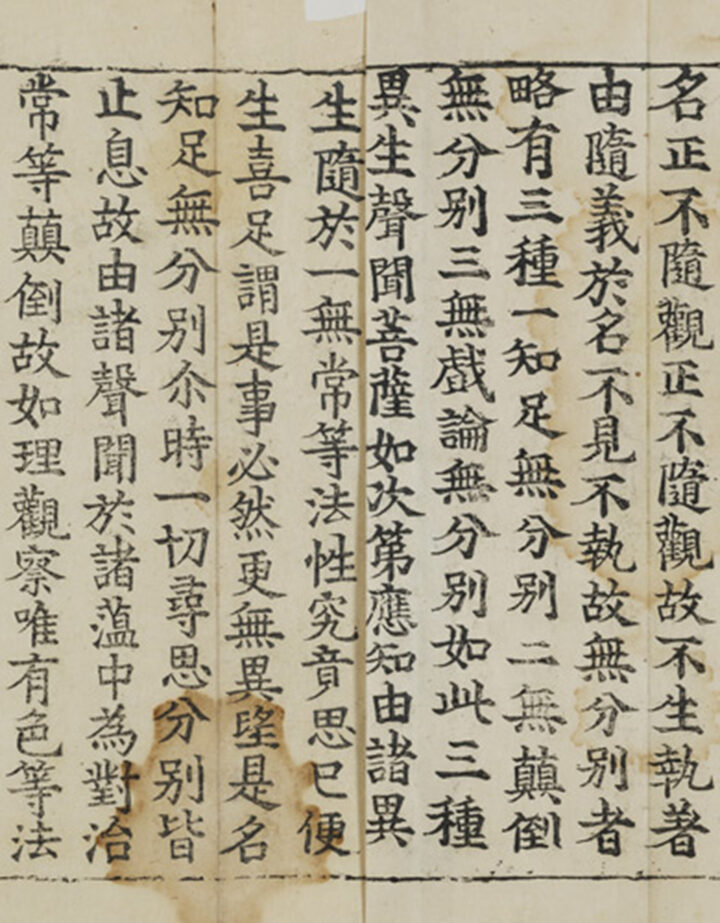 名正不隨觀正不隨觀故不生執著
由隨義於名不見不執故無分別者
略有三種一知足無分別二無顛倒
無分别三無戲論無分別如此三種
異生聲聞菩薩如次第應知由諸異
生隨於一無常等法性究竟思已便
生喜足謂是事必然更無異望是名
知足無分别尒時一切尋思分别皆
止息故由諸聲聞於諸薀中為對治
常等顛倒故如理觀察唯有色等法